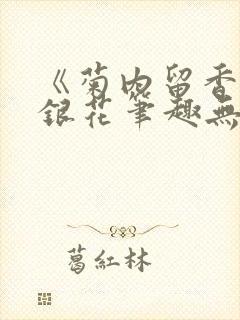 《菊内留香
銀花笔趣無
葛紅林